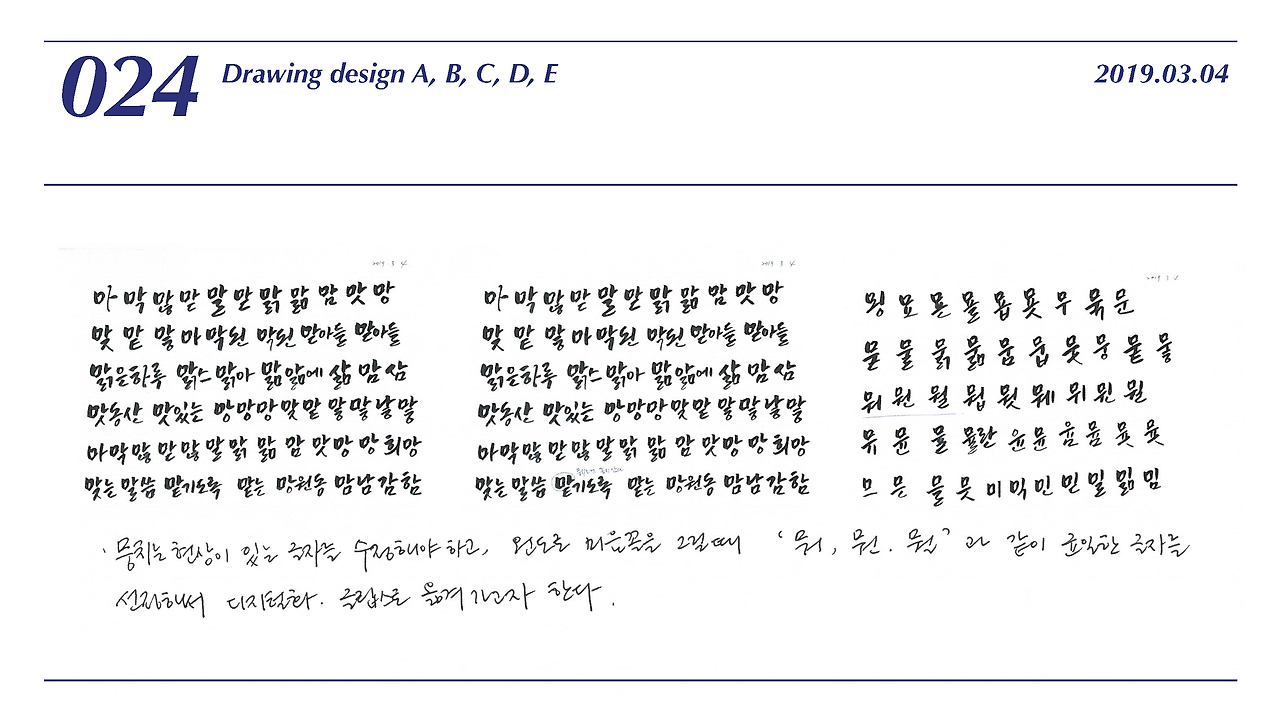 024
Drawing design A, B, C, D, E
2019.03.04
2019 3 4
마 막 많 만 말 만 맑 맒 맘 맛 망
맞 맡 맣 마 막된 막된 맏아들 맏아들
맑은하루 맑스 맑아 맒 앎에 삶 맘 삼
맛동산 맛있는 앙망망 맞 맡 말 말 날 말
마 막 많 만 많 말 맑 맒 맘 맛 망 망 희망
맞는 말씀 맡기도록 맡는 망원동 맘 남 감 함
2019 3 4
마 막 많 만 말 만 맑 맒 맘 맛 망
맞 맡 맣 마 막된 막된 맏아들 맏아들
맑은하루 맑스 맑아 맒 앎에 삶 맘 삼
맛동산 맛있는 앙망망 맞 맡 말 말 날 말
마 막 많 만 많 말 맑 맒 맘 맛 망 망 희망
맞는 말씀 맡기도록 맡는 망원동 맘 남 감 함
2019 3 4
묑 묘 묜 묠 묩 묫 무 묵 문
묻 물 묽 묾 뭄 뭅 뭇 뭉 뭍 뭏
뭐 뭔 뭘 뭡 뭣 뭬 뮈 뮌 뮐
뮤 뮨 뮬 뮬란 윤 뮨 윰 뮴 뮷 뮷
므 믄 믈 믓 미 믹 민 민 밀 밂 밈
뭉치는 현상이 있는 글자들 수정해야 하고, 의도로 미음꼴을 그릴 때 "뭐, 뭔, 뭘" 과 같이 균일한 글자들
선정해서 디지털화. 글립스로 옮겨 가고자 한다.